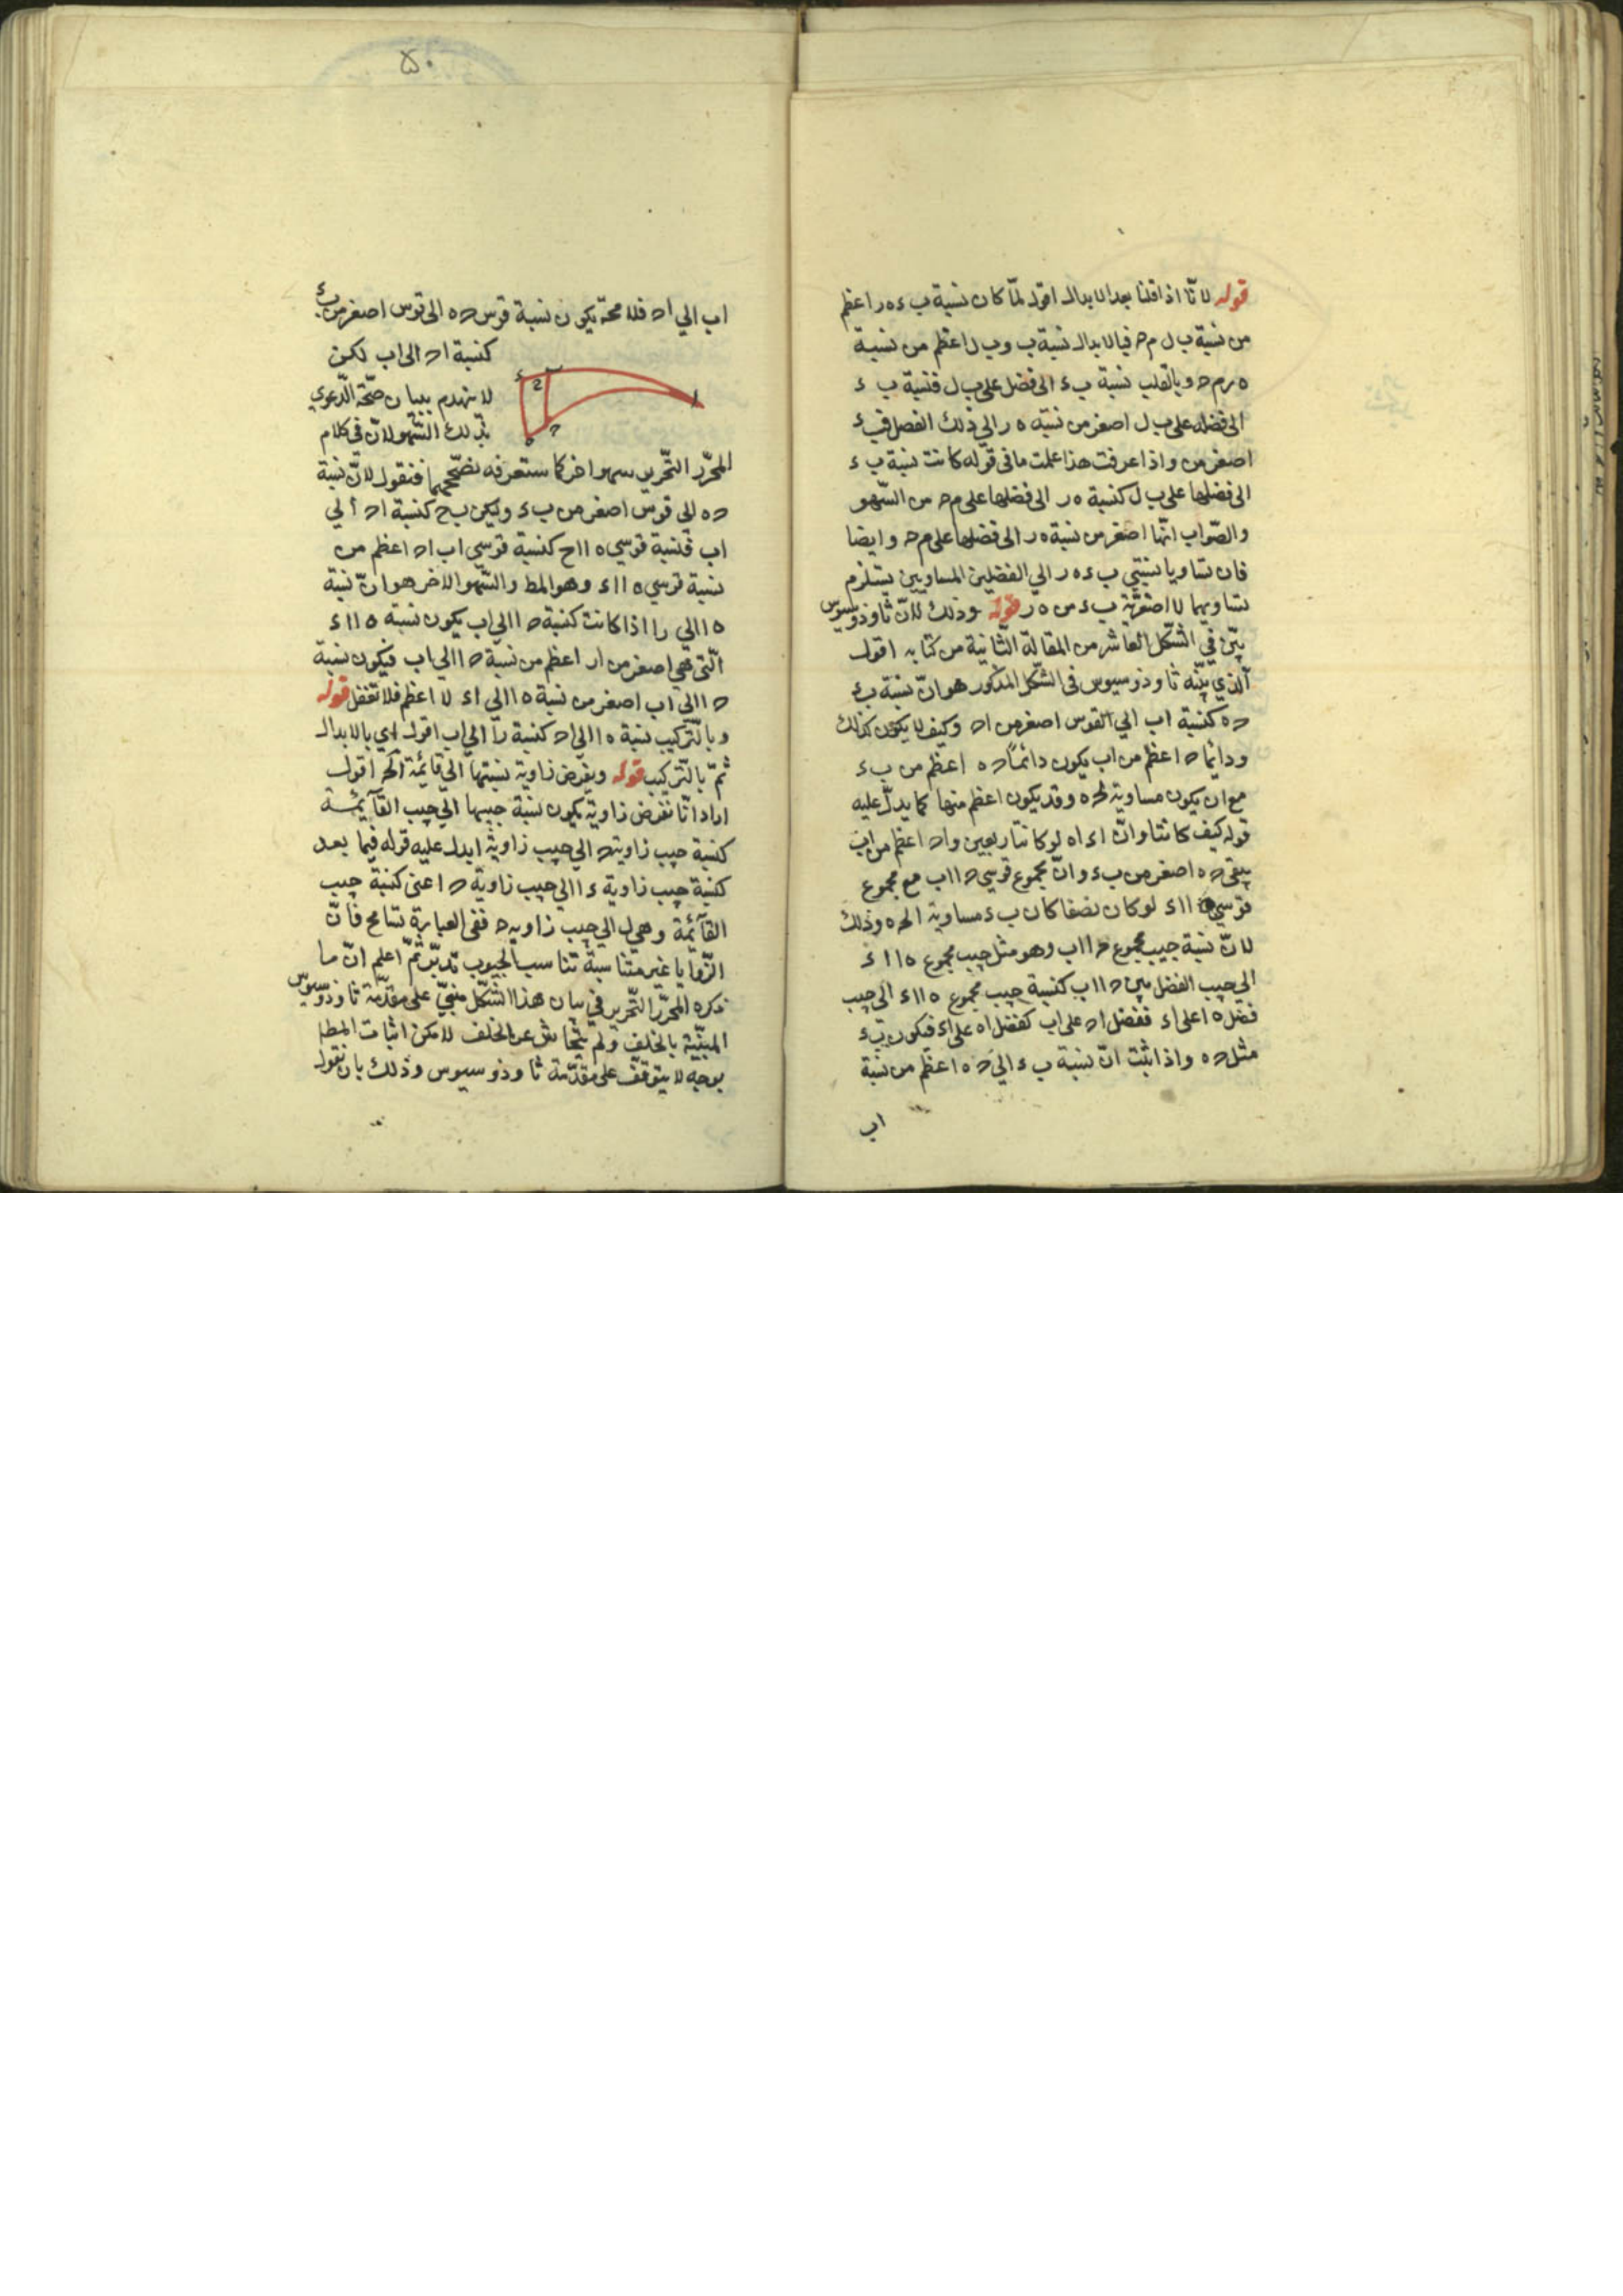 قوله لانّا اذا قلنا بعد الابدال اقول لمّا كان نسبة ب ء ه ر اعظم
من نسبة ب ل م ح فبالابدال نسبة ب ء ب ل اعظم من نسبة
ه ر م ح وبالقلب نسبة ب ء الى فضل على ب ل فنسبة ب ء
الى فضله على ب ل اصغر من نسبة ه ر الى ذلك الفضل فب ء
اصغر من واذا عرفت هذا علمت ما فى قوله كانت نسبة ب ء
الى فضلها على ب ل كنسبة ه ر الى فضلها على م ح من السّهو
والصّواب انّها اصغر من نسبة ه ر الى فضلها على م ح وايضا
فان تساويا نسبتي ب ء ه ر الي الفضلين المساويين يستلزم
تساويهما لا اصغريّة ب ء من ه ر قوله وذلك لانّ ثاوذوسيوس
بيّن في الشّكل العاشر من المقالة الثّانية من كتابه اقول
الّذي بيّنه ثاوذوسيوس فى الشّكل المذكور هو انّ نسبة ب ء
ح ه كنسبة اب الي القوس اصغر من اح وكيف لا يكون كذلك
ودائما ح ا اعظم من اب يكون دائماً ح ه اعظم من ب ء
مع ان يكون مساوية لح ه وقد يكون اعظم منها كما يدلّ عليه
قوله كيف كانتا وانّ اء اه لو كانتا ربعين واح اعظم من اب
يبقى ح ه اصغر من ب ء وانّ مجموع قوسي ح ا اب مع مجموع
قوسي ه ا اء لو كان نصفا كان ب ء مساوية لح ه وذلك
لانّ نسبة جيب مجموع ح ا اب وهو مثل جيب مجموع ه ا اء
الى جيب الفضل بين ح ا اب كنسبة جيب مجموع ه ا اء الى جيب
فضل ه ا على اء ففضل اح على اب كفضل اه على اء فيكون ب ء
مثل ح ه واذا ثبت انّ نسبة ب ء الي ح ه اعظم من نسبة
اب
٥٠
اب الي اح فلا محة يكون نسبة قوس ح ه الى قوس اصغر من ب ء
كنسبة اح الى اب لكن
لا ينهدم بنيان صحّة الدّعوي
بذلك السّهو لانّ فى كلام
المحرّر التّحرير سهوا اخر كما ستعرفه نصحّحهما فنقول لانّ نسبة
ح ه الى قوس اصغر من ب ء وليكن ب ح كنسبة اح الي
اب فنسبة قوسي ه ا اح كنسبة قوسي اب اح اعظم من
نسبة قوسي ه ا اء وهو المط والسّهو الاخر هو انّ نسبة
ه ا الي ر ا اذا كانت كنسبة ح ا الي اب يكون نسبة ه ا اء
الّتى هي اصغر من ار اعظم من نسبة ح ا الي اب فيكون نسبة
ح ا الي اب اصغر من نسبة ه ا الي اء لا اعظم فلا تغفل قوله
وبالتّركيب نسبة ه ا الي اح كنسبة ر ا الي اب اقول اي بالابدال
ثمّ بالتّركيب قوله ويفرض زاوية نسبتها الي قائمة الخ اقول
اراد انّا نفرض زاوية يكون نسبة جيبها الي جيب القآئمة
كنسبة جيب زاوية ح الي جيب زاوية ا يدل عليه قوله فيما بعد
كنسبة جيب زاوية ء ا الي جيب زاوية ح اعنى كنسبة جيب
القآئمة وهي ل الي جيب زاوية ح ففى العبارة تسامح فانّ
الزّوايا غير متناسبة تناسب الجيوب تدبّر ثمّ اعلم انّ ما
ذكره المحرّر التّحرير في بيان هذا الشّكل مبنيّ على مقدّمة ثاوذوسيوس
المبيّنة بالخلف ولم يتحاش عن الخلف لامكن اثبات المطا
بوجه لا يتوقّف على مقدّمة ثاوذوسيوس وذلك بان نقول